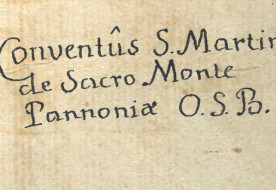 Conventûs S. Martin
de Sacro Monte
Pannoniæ O.S.B.